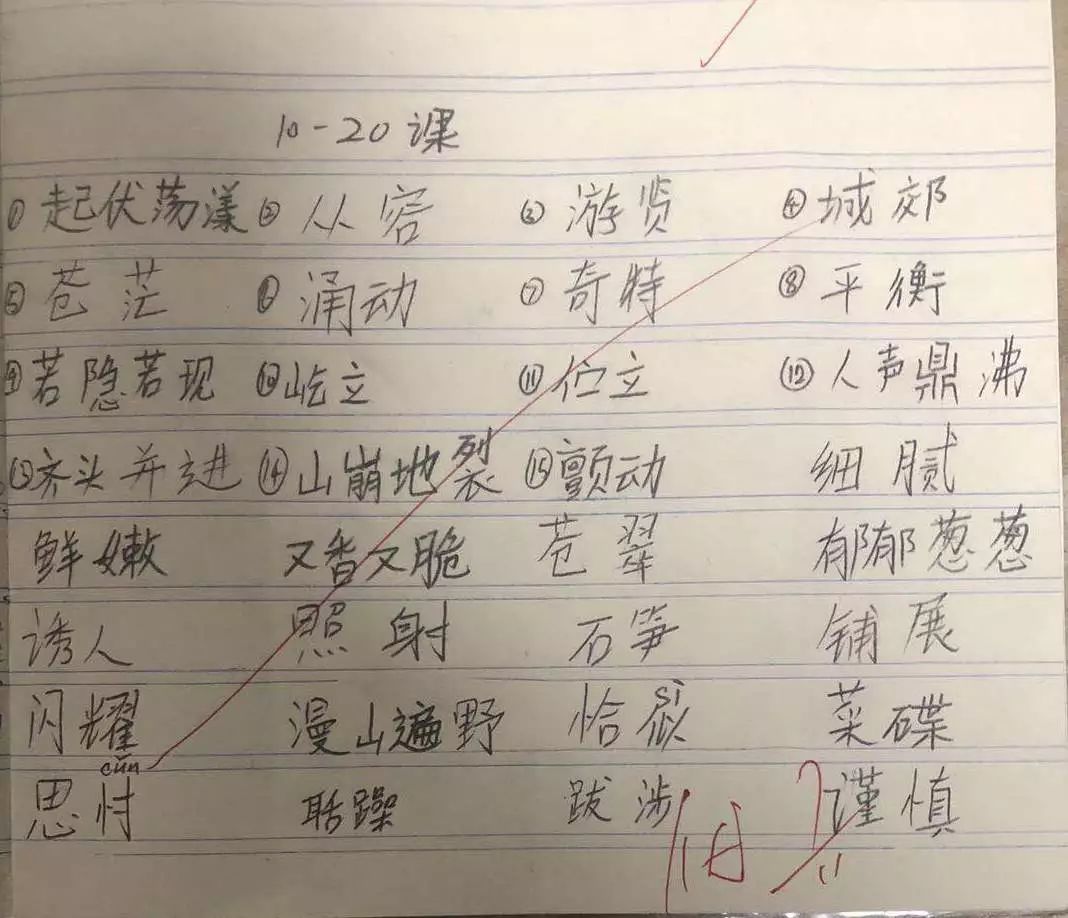 10-20课
①起伏荡漾 ② 从容 ③ 游贤 ④城郊
⑤ 苍茫 ⑥ 涌动 ⑦ 奇特 ⑧ 平衡
⑨若隐若现 ⑩屹立 ⑪伫立 ⑫人声鼎沸
⑬齐头并进 ⑭山崩地裂 ⑮颤动 细腻
鲜嫩 又香又脆 苍翠 郁郁葱葱
诱人 照射 石笋 铺展
闪耀 漫山遍野 恰似 sì 菜碟
cǔn
思忖 聒躁 跋涉 谨慎